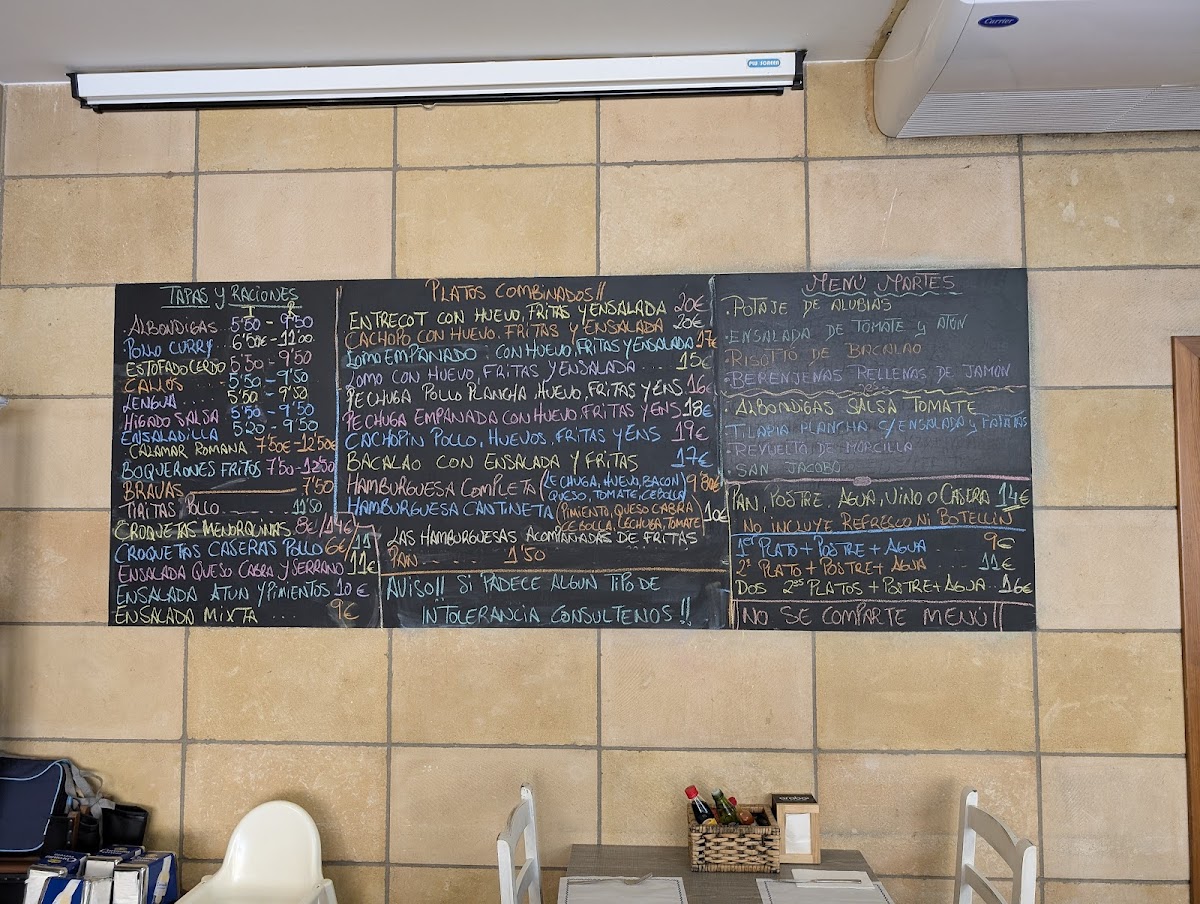 Carrier
TAPAS Y RACIONES
T R
ALBONDIGAS 5'50 - 9'50
POLLO CURRY 6'50€ - 11'00
ESTOFADO CERDO 5'50 - 9'50
CALLOS 5'50 - 9'50
LENGUA 5'50 - 9'50
HIGADO SALSA 5'50 - 9'50
ENSALADILLA 5'20 - 9'50
CALAMAR ROMANA 7'50€ - 12'50€
BOQUERONES FRITOS 7'50 - 12'50
BRAVAS 7'50
TIRITAS POLLO 11'50
CROQUETAS MENORQUINAS 8€ (14€)
CROQUETAS CASERAS POLLO 6€/11
ENSALADA QUESO CABRA Y SERRANO 11€
ENSALADA ATUN Y PIMIENTOS 10€
ENSALADA MIXTA .... 9€
PLATOS COMBINADOS!!
ENTRECOT CON HUEVO, FRITAS Y ENSALADA 20€
CACHOPO CON HUEVO. FRITAS Y ENSALADA 20€
LOMO EMPANADO : CON HUEVO, FRITAS Y ENSALADA 17€
LOMO CON HUEVO, FRITAS Y ENSALADA .... 15€
PECHUGA POLLO PLANCHA, HUEVO, FRITAS Y ENS 16€
PECHUGA EMPANADA CON HUEVO, FRITAS Y ENS 18€
CACHOPIN POLLO, HUEVOS, FRITAS Y ENS 19€
BACALAO CON ENSALADA Y FRITAS 17€
HAMBURGUESA COMPLETA (LECHUGA, HUEVO, BACON) 9'80€
QUESO, TOMATE, CEBOLLA
HAMBURGUESA CANTINETA (PIMIENTO, QUESO CABRA 10€
CEBOLLA, LECHUGA, TOMATE)
LAS HAMBURGUESAS ACOMPAÑADAS DE FRITAS
PAN ....... 1'50
AVISO!! SI PADECE ALGUN TIPO DE
INTOLERANCIA CONSULTENOS!!
MENÚ MARTES
. POTAJE DE ALUBIAS
. ENSALADA DE TOMATE Y ATÚN
. RISOTTO DE BACALAO
. BERENJENAS RELLENAS DE JAMON
. ALBONDIGAS SALSA TOMATE
. TILAPIA PLANCHA C/ENSALADA Y PATATAS
. REVUELTO DE MORCILLA
. SAN JACOBO
PAN, POSTRE, AGUA, VINO O CASERA 14€
NO INCLUYE REFRESCO NI BOTELLIN
1er PLATO + POSTRE + AGUA ... 9€
2º PLATO + POSTRE + AGUA ... 11€
DOS 2os PLATOS + POSTRE + AGUA . 16€
NO SE COMPARTE MENÚ!!